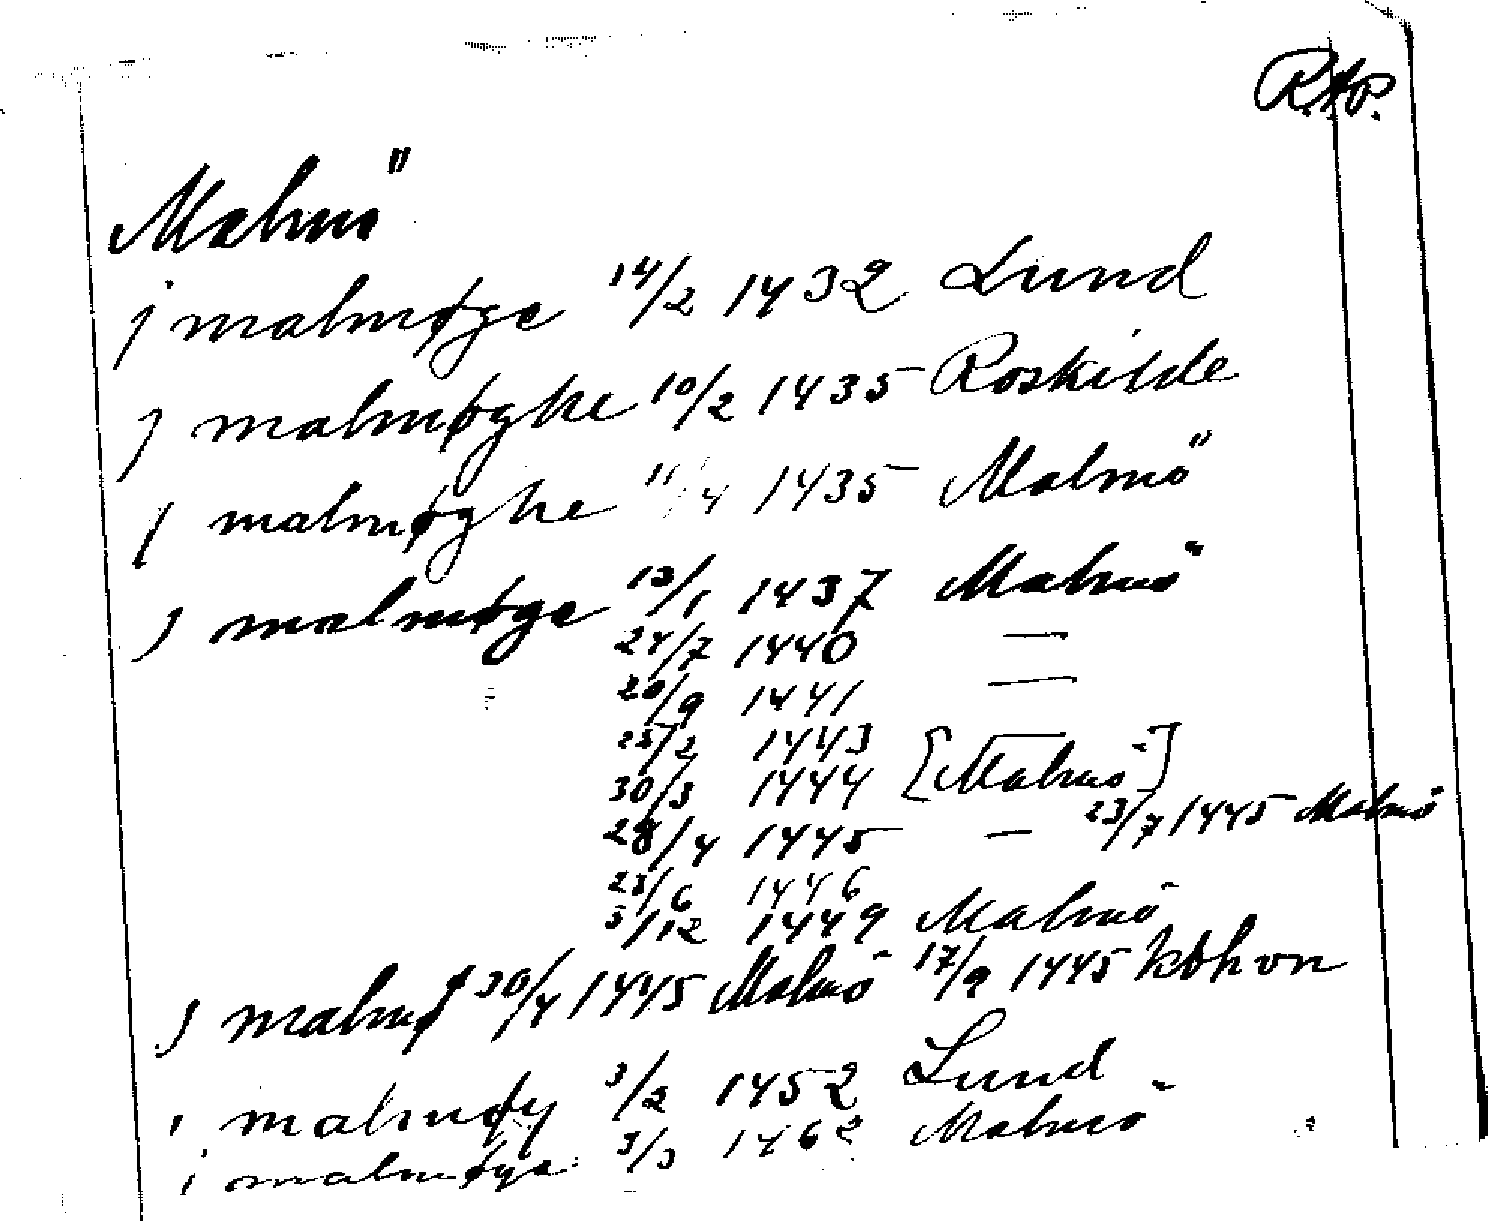 RAp.
Malmö
j malmøge 14/2 1432 Lund
j malmøghe 10/2 1435 Roskilde
j malmøghe 11/4 1435 Malmö
j malmøge 13/1 1437 Malmö
24/7 1440 —
20/9 1441 —
25/2 1443 —
30/3 1444 [Malmö]
28/4 1445 — 23/7 1445 Malmö
23/6 1446
5/12 1449 Malmö
j malmø 30/4 1445 Malmö 17/9 1445 kbhvn
i malmøy 3/2 1452 Lund
i malmøge 3/3 1462 Malmö